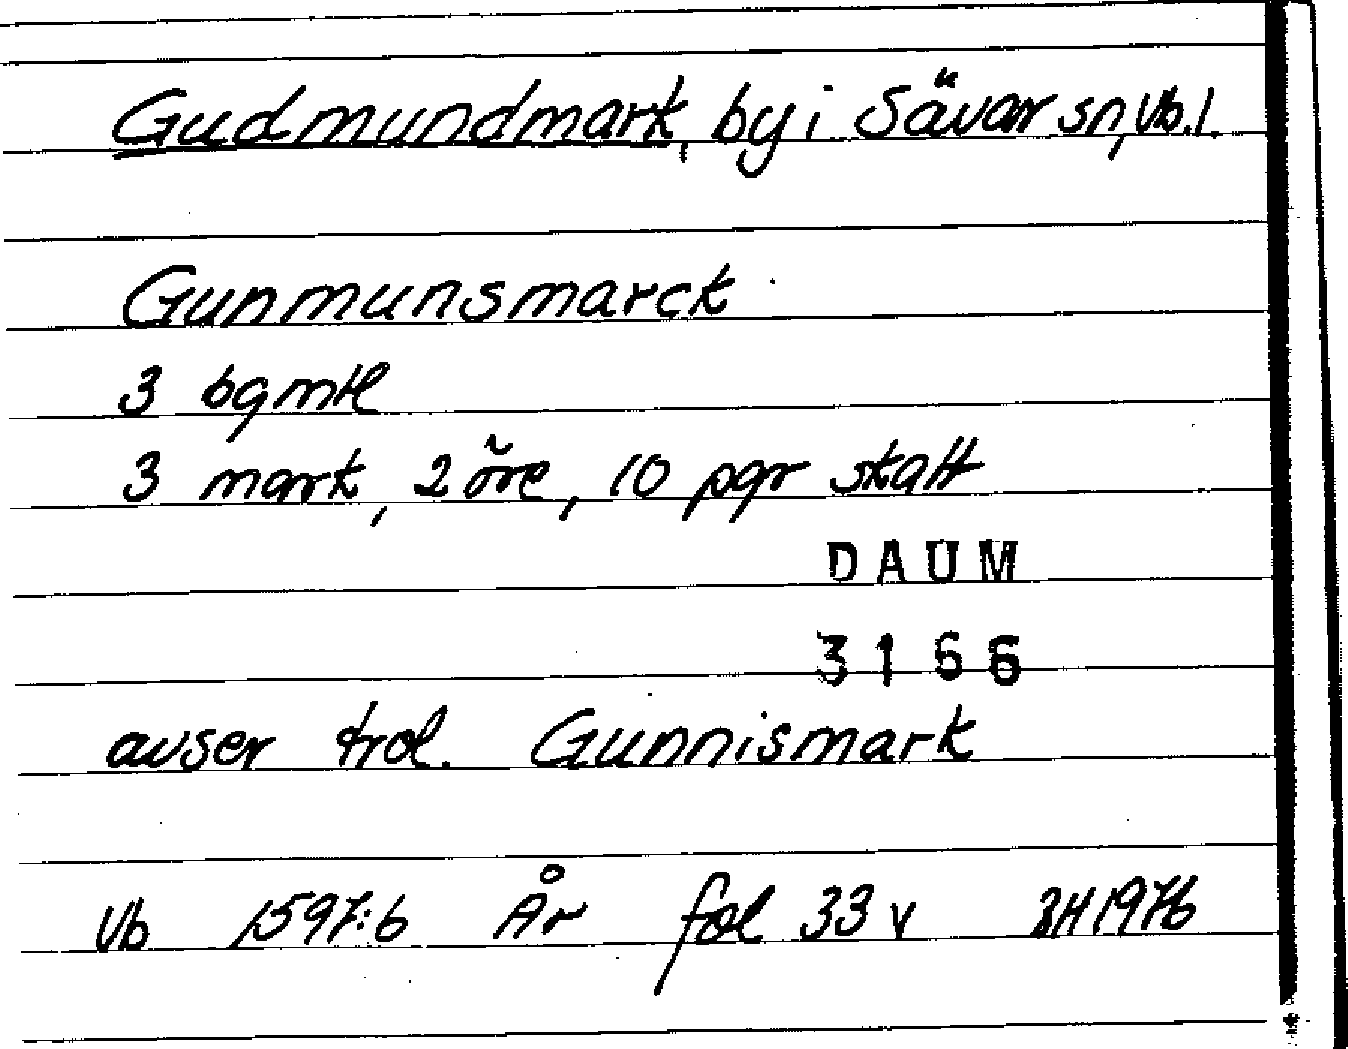 Gudmundmark, by i Sävar sn, Vb.l.
Gunmunsmarck
3 bgmtl
3 mark, 2 öre, 10 pgr skatt
DAUM
3166
avser trol. Gunnismark
Vb 1597:6 År fol 33 v BH 1976